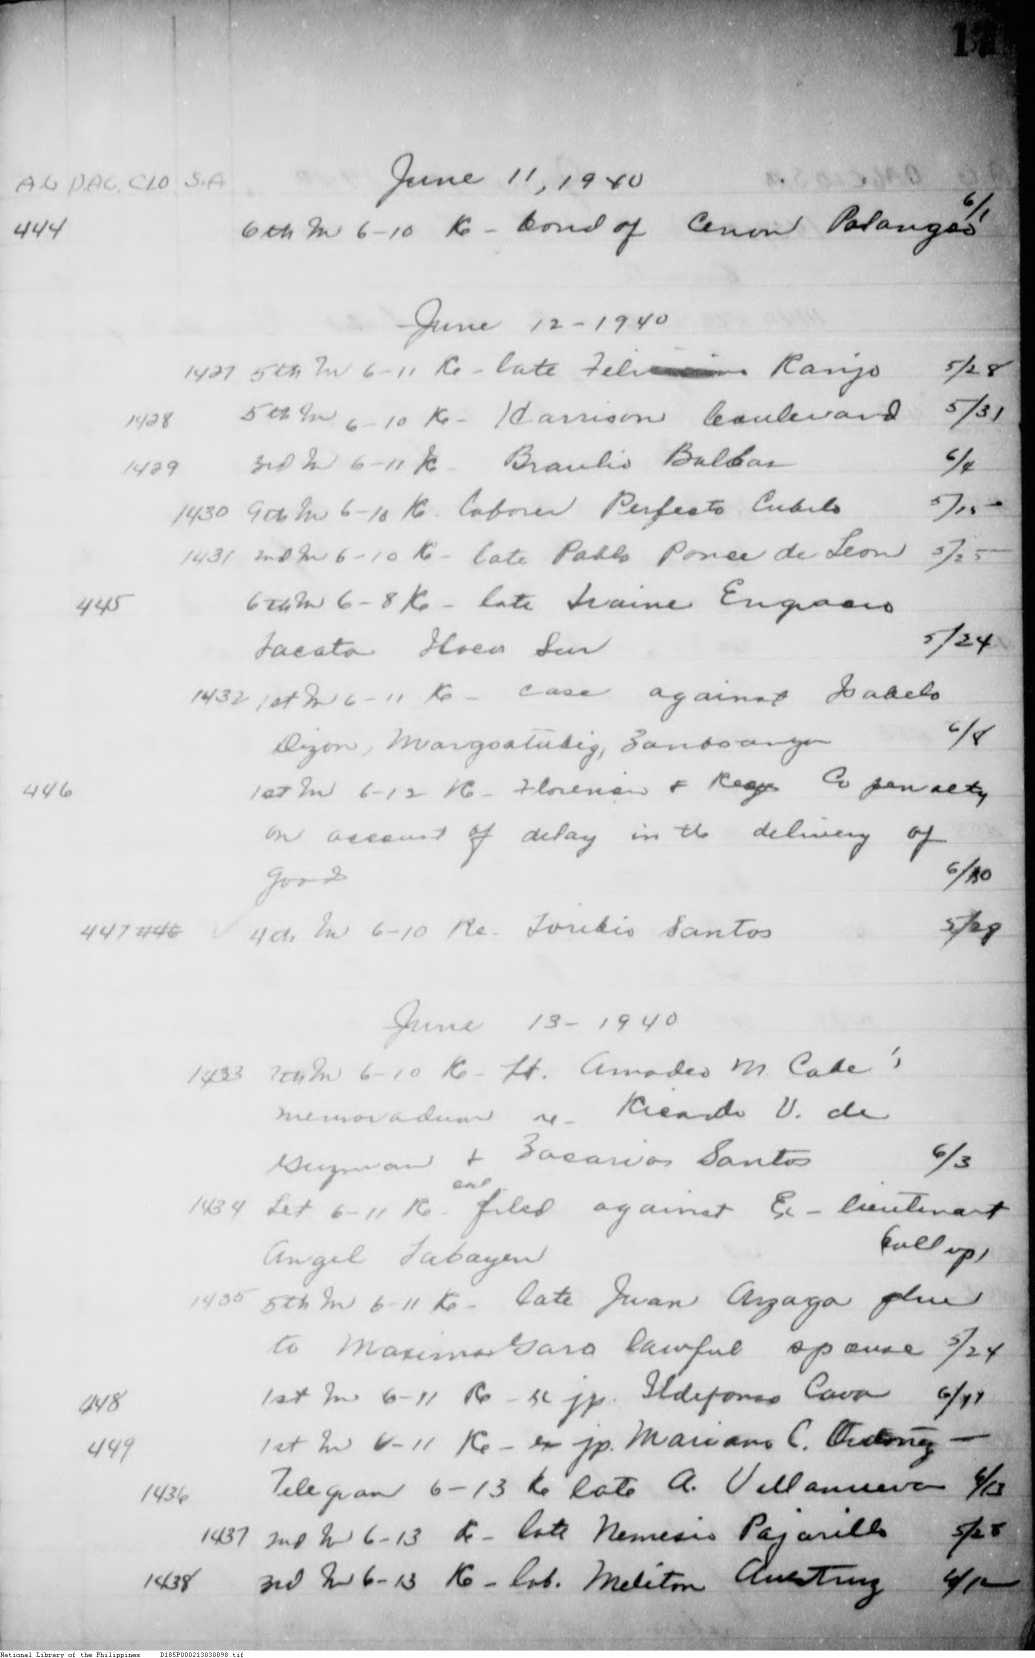 17
AG DAC. CLO S.A June 11, 1940
444 6th In 6-10 Re - bond of Cenon Palangeo 6/1
June 12-1940
1427 5th In 6-11 Re - late Ranijo 5/28
1428 5th In 6-10 Re - Harrison boulevard 5/31
1429 3rd In 6-11 Re Braulio Balbas 6/4
1430 9th In 6-10 Re. laborer Perfecto Cubelo
1431 2nd In 6-10 Re - late Pablo Ponce de Leon 5/25
445 6th In 6-8 Re - late Engracio
5/24
1432 1st In 6-11 Re - case against Isabelo
Dizon, Margosatubig, Zamboanga 6/8
446 1st In 6-12 Re - & Co penalty
on account of delay in the delivery of
goods 6/10
447 446 4th In 6-10 Re. Toribio Santos 5/29
June 13-1940
1433 7th In 6-10 Re - Lt. Amadeo M. Cabe's
memoradum re - Ricardo V. de
Guzman & Zacarias Santos 6/3
1434 Let 6-11 Re case filed against Ex - lieutenant
Angel Tabayen
1435 5th In 6-11 Re - late Juan Arzaga
to Maxima lawful spouse 5/24
448 1st In 6-11 Re - ex jp. Ildefonso Cava
449 1st In 6-11 Re - ex jp. Mariano C. Ordoñez —
1436 Telegram 6-13 Re late A. Villanueva 6/13
1437 2nd In 6-13 Re - late Nemesio Pajarillo 5/28
1438 3rd In 6-13 Re - lab. Meliton 6/12
National Library of the Philippines D185P000213030898.tif